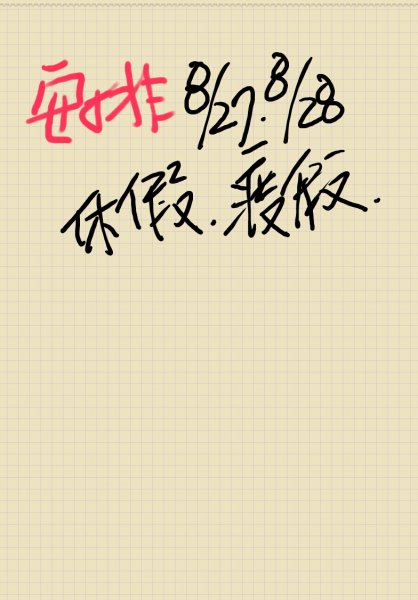 安排8/27.8/28
休假.度假.